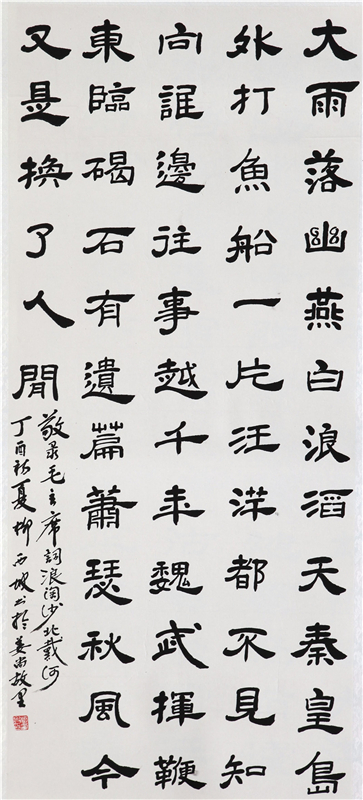 大雨落幽燕白浪滔天秦皇島
外打魚船一片汪洋都不見知
向誰邊往事越千年魏武揮鞭
東臨碣石有遺篇蕭瑟秋風今
又是換了人間
敬录毛主席詞浪淘沙北戴河
丁酉初夏柳西坡书於姜尚故里